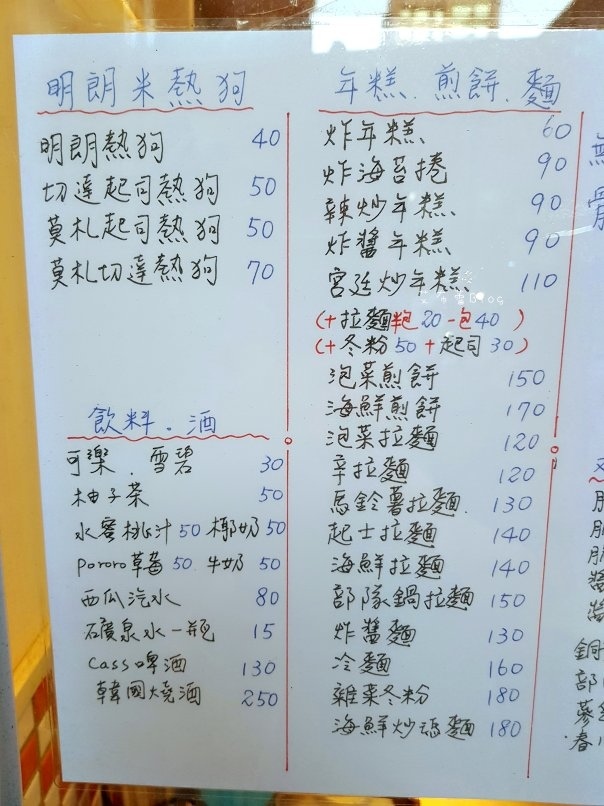 明朗米熱狗
明朗熱狗 40
切達起司熱狗 50
莫札起司熱狗 50
莫札切達熱狗 70
飲料.酒
可樂.雪碧 30
柚子茶 50
水蜜桃汁 50 椰奶 50
pororo草莓 50 牛奶 50
西瓜汽水 80
礦泉水一瓶 15
Cass啤酒 130
韓國燒酒 250
年糕.煎餅.麵
炸年糕 60
炸海苔捲 90
辣炒年糕 90
炸醬年糕 90
宮廷炒年糕 110
(+拉麵半包20 一包40)
(+冬粉50+起司30)
泡菜煎餅 150
海鮮煎餅 170
泡菜拉麵 120
辛拉麵 120
馬鈴薯拉麵 130
起士拉麵 140
海鮮拉麵 140
部隊鍋拉麵 150
炸醬麵 130
冷麵 160
雜菜冬粉 180
海鮮炒瑪麵 180